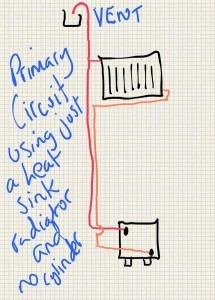 VENT
Primary
Circuit
using just
a heat
sink
radiator
and
no cylinder